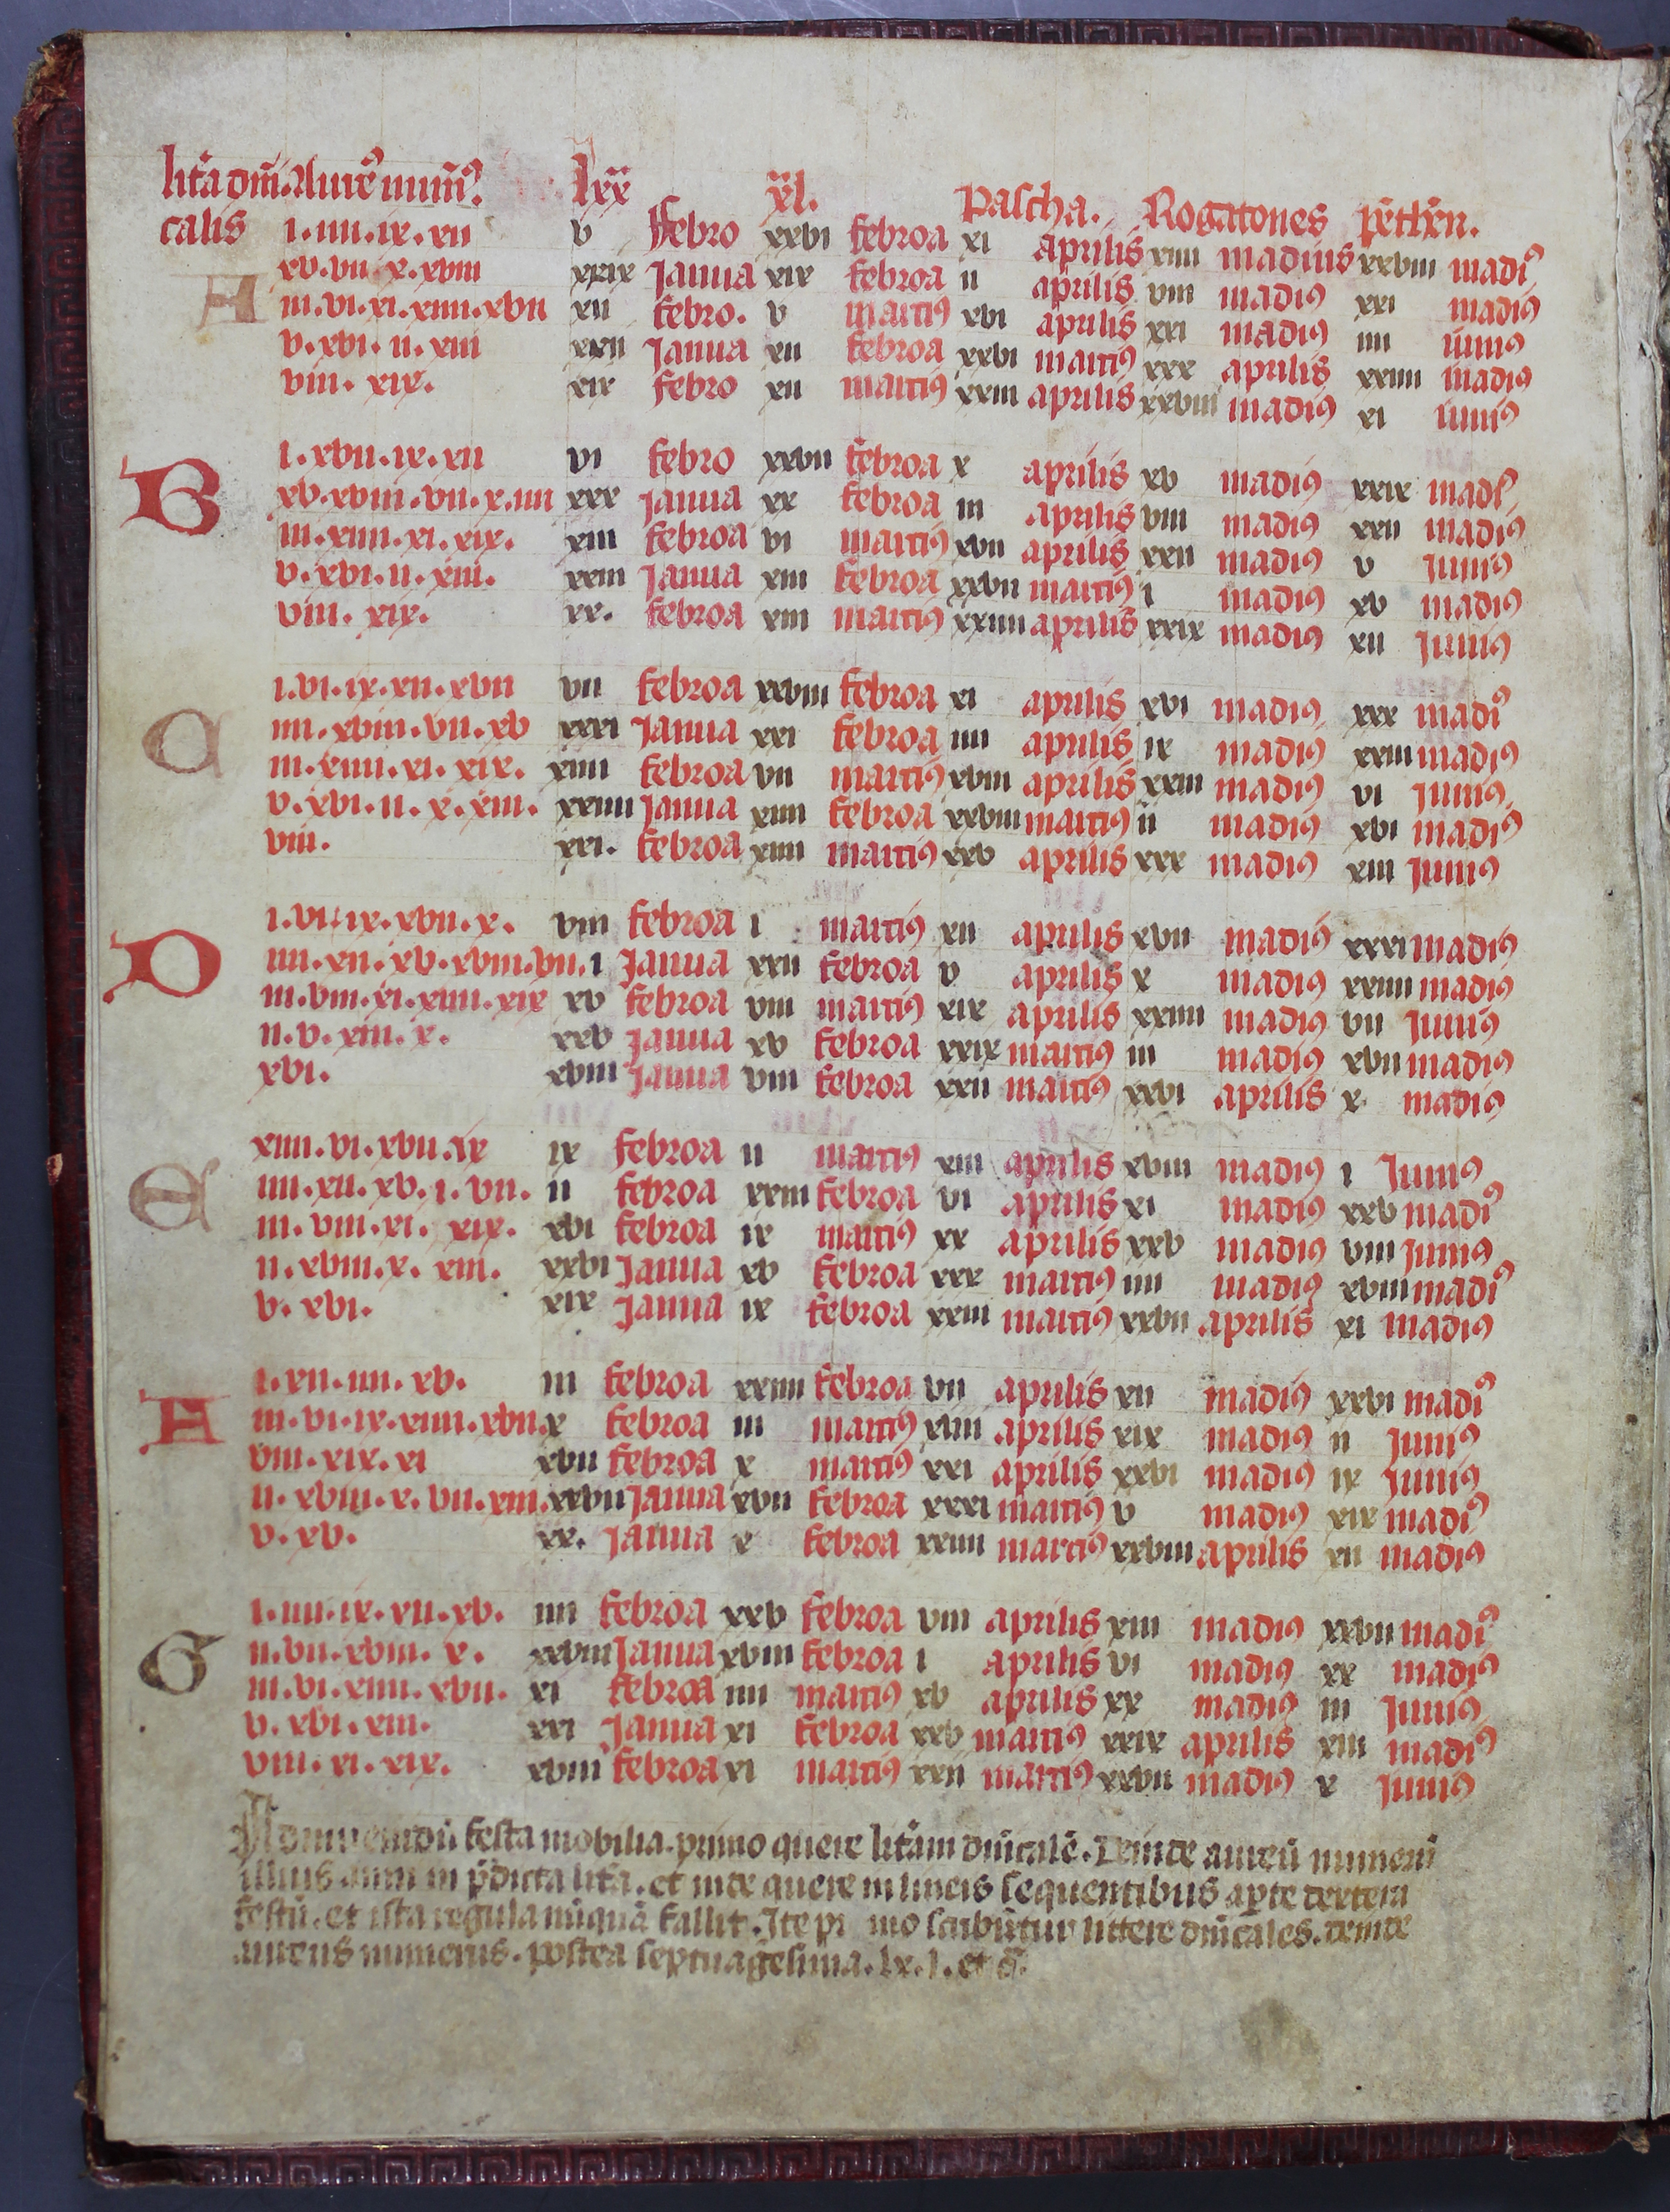 lit̄a dm̄i Aure᷒ num̄᷒. lxx xl. Pascha. Rogatones pētēn.
calis i. iiii. ix. xii v ffebro xxvi febroa xi aprilis xiiii madius xxviii madi᷒
A xv. vii x. xviii xxix Janua xix febroa ii aprilis viii madiꝰ xxi madiꝰ
iii. vi. xi. xiiii. xvii xii febro. v marciꝰ xvi aprilis xxi madiꝰ iiii iuniꝰ
v. xvi. ii. xiii xxii Janua xii febroa xxvi marciꝰ xxx aprilis xxiiii madiꝰ
viii. xix. xix febro xii marciꝰ xxiii aprilis xxviii madiꝰ xi iuniꝰ
B i. xvii. ix. xii vi febro xxvii febroa x aprilis xv madiꝰ xxix mad᷒
xv. xviii. vii. x. iiii xxx Janua xx febroa iii aprilis viii madiꝰ xxii madiꝰ
iii. xiiii. xi. xix. xiii febroa vi marciꝰ xvii aprilis xxii madiꝰ v Juniꝰ
v. xvi. ii. xiii. xxiii Janua xiii febroa xxvii marciꝰ i madiꝰ xv madiꝰ
viii. xix. xx. febroa xiii marciꝰ xxiiii aprilis xxix madiꝰ xii Juniꝰ
C i. vi. ix. xii. xvii vii febroa xxviii febroa xi aprilis xvi madiꝰ xxx madi᷒
iiii. xviii. vii. xv xxxi Janua xxi febroa iiii aprilis ix madiꝰ xxiii madiꝰ
iii. xiiii. xi. xix. xiiii febroa vii marciꝰ xviii aprilis xxiii madiꝰ vi Juniꝰ
v. xvi. ii. x. xiii. xxiiii Janua xiiii febroa xxviii marciꝰ ii madiꝰ xvi madiꝰ
viii. xxi. febroa xiiii marciꝰ xxv aprilis xxx madiꝰ xiii Juniꝰ
D i. vi. ix. xvii. x. viii febroa i marciꝰ xii aprilis xvii madiꝰ xxxi madiꝰ
iiii. xii. xv. xviii. vii. i Janua xxii febroa v aprilis x madiꝰ xxiiii madiꝰ
iii. viii. xi. xiiii. xix xv febroa viii marciꝰ xix aprilis xxiiii madiꝰ vii Juniꝰ
ii. v. xiii. x. xxv Janua xv febroa xxix marciꝰ iii madiꝰ xvii madiꝰ
xvi. xviii Janua viii febroa xxii marciꝰ xxvi aprilis x madiꝰ
E xiiii. vi. xvii. ix ix febroa ii marciꝰ xiii aprilis xviii madiꝰ i Juniꝰ
iiii. xii. xv. i. vii. ii febroa xxiii febroa vi aprilis xi madiꝰ xxv madi᷒
iii. viii. xi. xix. xvi febroa ix marciꝰ xx aprilis xxv madiꝰ viii Juniꝰ
ii. xviii. x. xiii. xxvi Janua xv febroa xxx marciꝰ iiii madiꝰ xviii madi᷒
v. xvi. xix Janua ix febroa xxiii marciꝰ xxvii aprilis xi madiꝰ
A i. xii. iiii. xv. iii febroa xxiiii febroa vii aprilis xii madiꝰ xxvi madi᷒
iii. vi. ix. xiiii. xvii. x febroa iii marciꝰ xiiii aprilis xix madiꝰ ii Juniꝰ
viii. xix. xi xvii febroa x marciꝰ xxi aprilis xxvi madiꝰ ix Juniꝰ
ii. xviii. x. vii. xiii. xxvii Janua xvii febroa xxxi marciꝰ v madiꝰ xix madi᷒
v. xv. xx. Janua x febroa xxiiii marciꝰ xxviii aprilis xii madiꝰ
G i. iiii. ix. xii. xv. iiii febroa xxv febroa viii aprilis xiii madiꝰ xxvii madi᷒
ii. vii. xviii. x. xxviii Janua xviii febroa i aprilis vi madiꝰ xx madiꝰ
iii. vi. xiiii. xvii. xi febroa iiii marciꝰ xv aprilis xx madiꝰ iii Juniꝰ
v. xvi. xiii. xxi Janua xi febroa xxv marciꝰ xxix aprilis xiii madiꝰ
viii. xi. xix. xviii febroa xi marciꝰ xxii marciꝰ xxvii madiꝰ x Juniꝰ
Ad inueniendū festa mobilia. primo quere litām dn̄icalē. Deinde aureū numerū
illius anni in p̄dicta lit̄a. et inde quere in lineis sequentibus a parte dextera
festū. et ista regula nūquā fallit. Ite pimo scribūtur littere dn̄icales. deinde
aureus numerus. postea septuagesima. lx. l. et c̄.